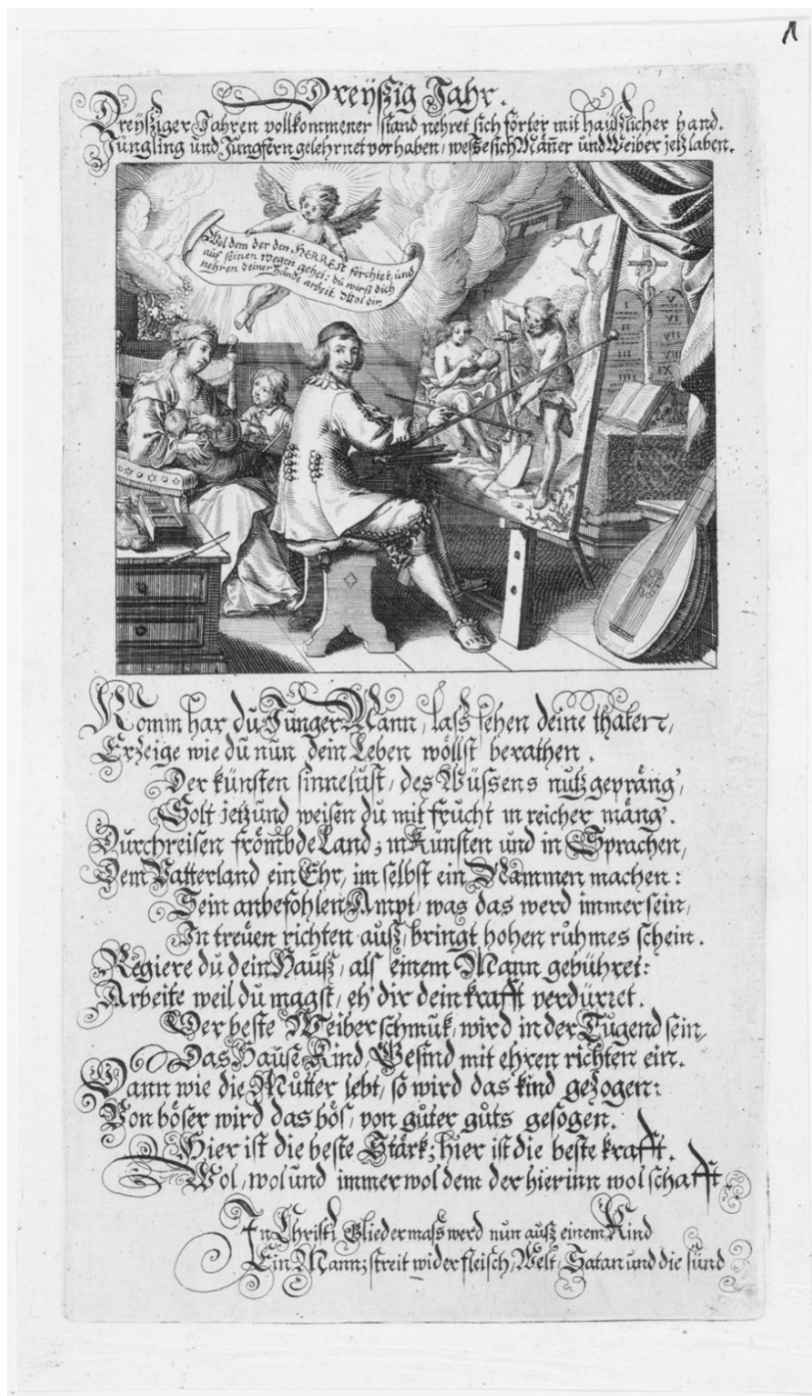 Dreÿßig Jahr.
Dreÿßiger Jahren vollkommener stand nehret sich förter mit haußlicher hand.
Jüngling und Jungfern gelehrnet vorhaben, weße sich Mañer und Weiber jetz laben.
Wol dem der den HERREN förchtet, und
auf seinen wegen gehet: du wirst dich
nehren deiner hände arbeit. Wol dir
I
VI
II
VII
III
VIII
IX
Komm har du Junger Mann, lass sehen deine thaten,
Erzeige wie du nun dein Leben wöllst berathen.
Der künsten sinnelust, des Wüssens nutz gepräng,
Solt jetzund weisen du mit frucht in reicher mäng.
Durchreisen frömbde Land; in Künsten und in Sprachen,
Dem Vatterland ein Ehr, im selbst ein Nammen machen:
Sein anbefohlen Ampt, was das werd immer sein,
In treüen richten auß, bringt hohen růhmes schein.
Regiere du dein Hauß, als einem Mann gebühret:
Arbeite weil du magst, eh' dir dein krafft verdürret.
Der beste Weiber schmuk, wird in der Tugend sein,
Das Hause, Kind, Gesind mit ehren richten ein.
Dann wie die Můtter lebt, so wird das kind gezogen:
Von böser wird das bös, von gůter gůts gesogen.
Hier ist die beste Stärk; hier ist die beste krafft.
Wol, wol und immer wol dem der hierinn wol schafft.
In Christi Gliedermass werd nun auß einem Kind
Ein Mann; streit wider fleisch, Welt, Satan und die sünd